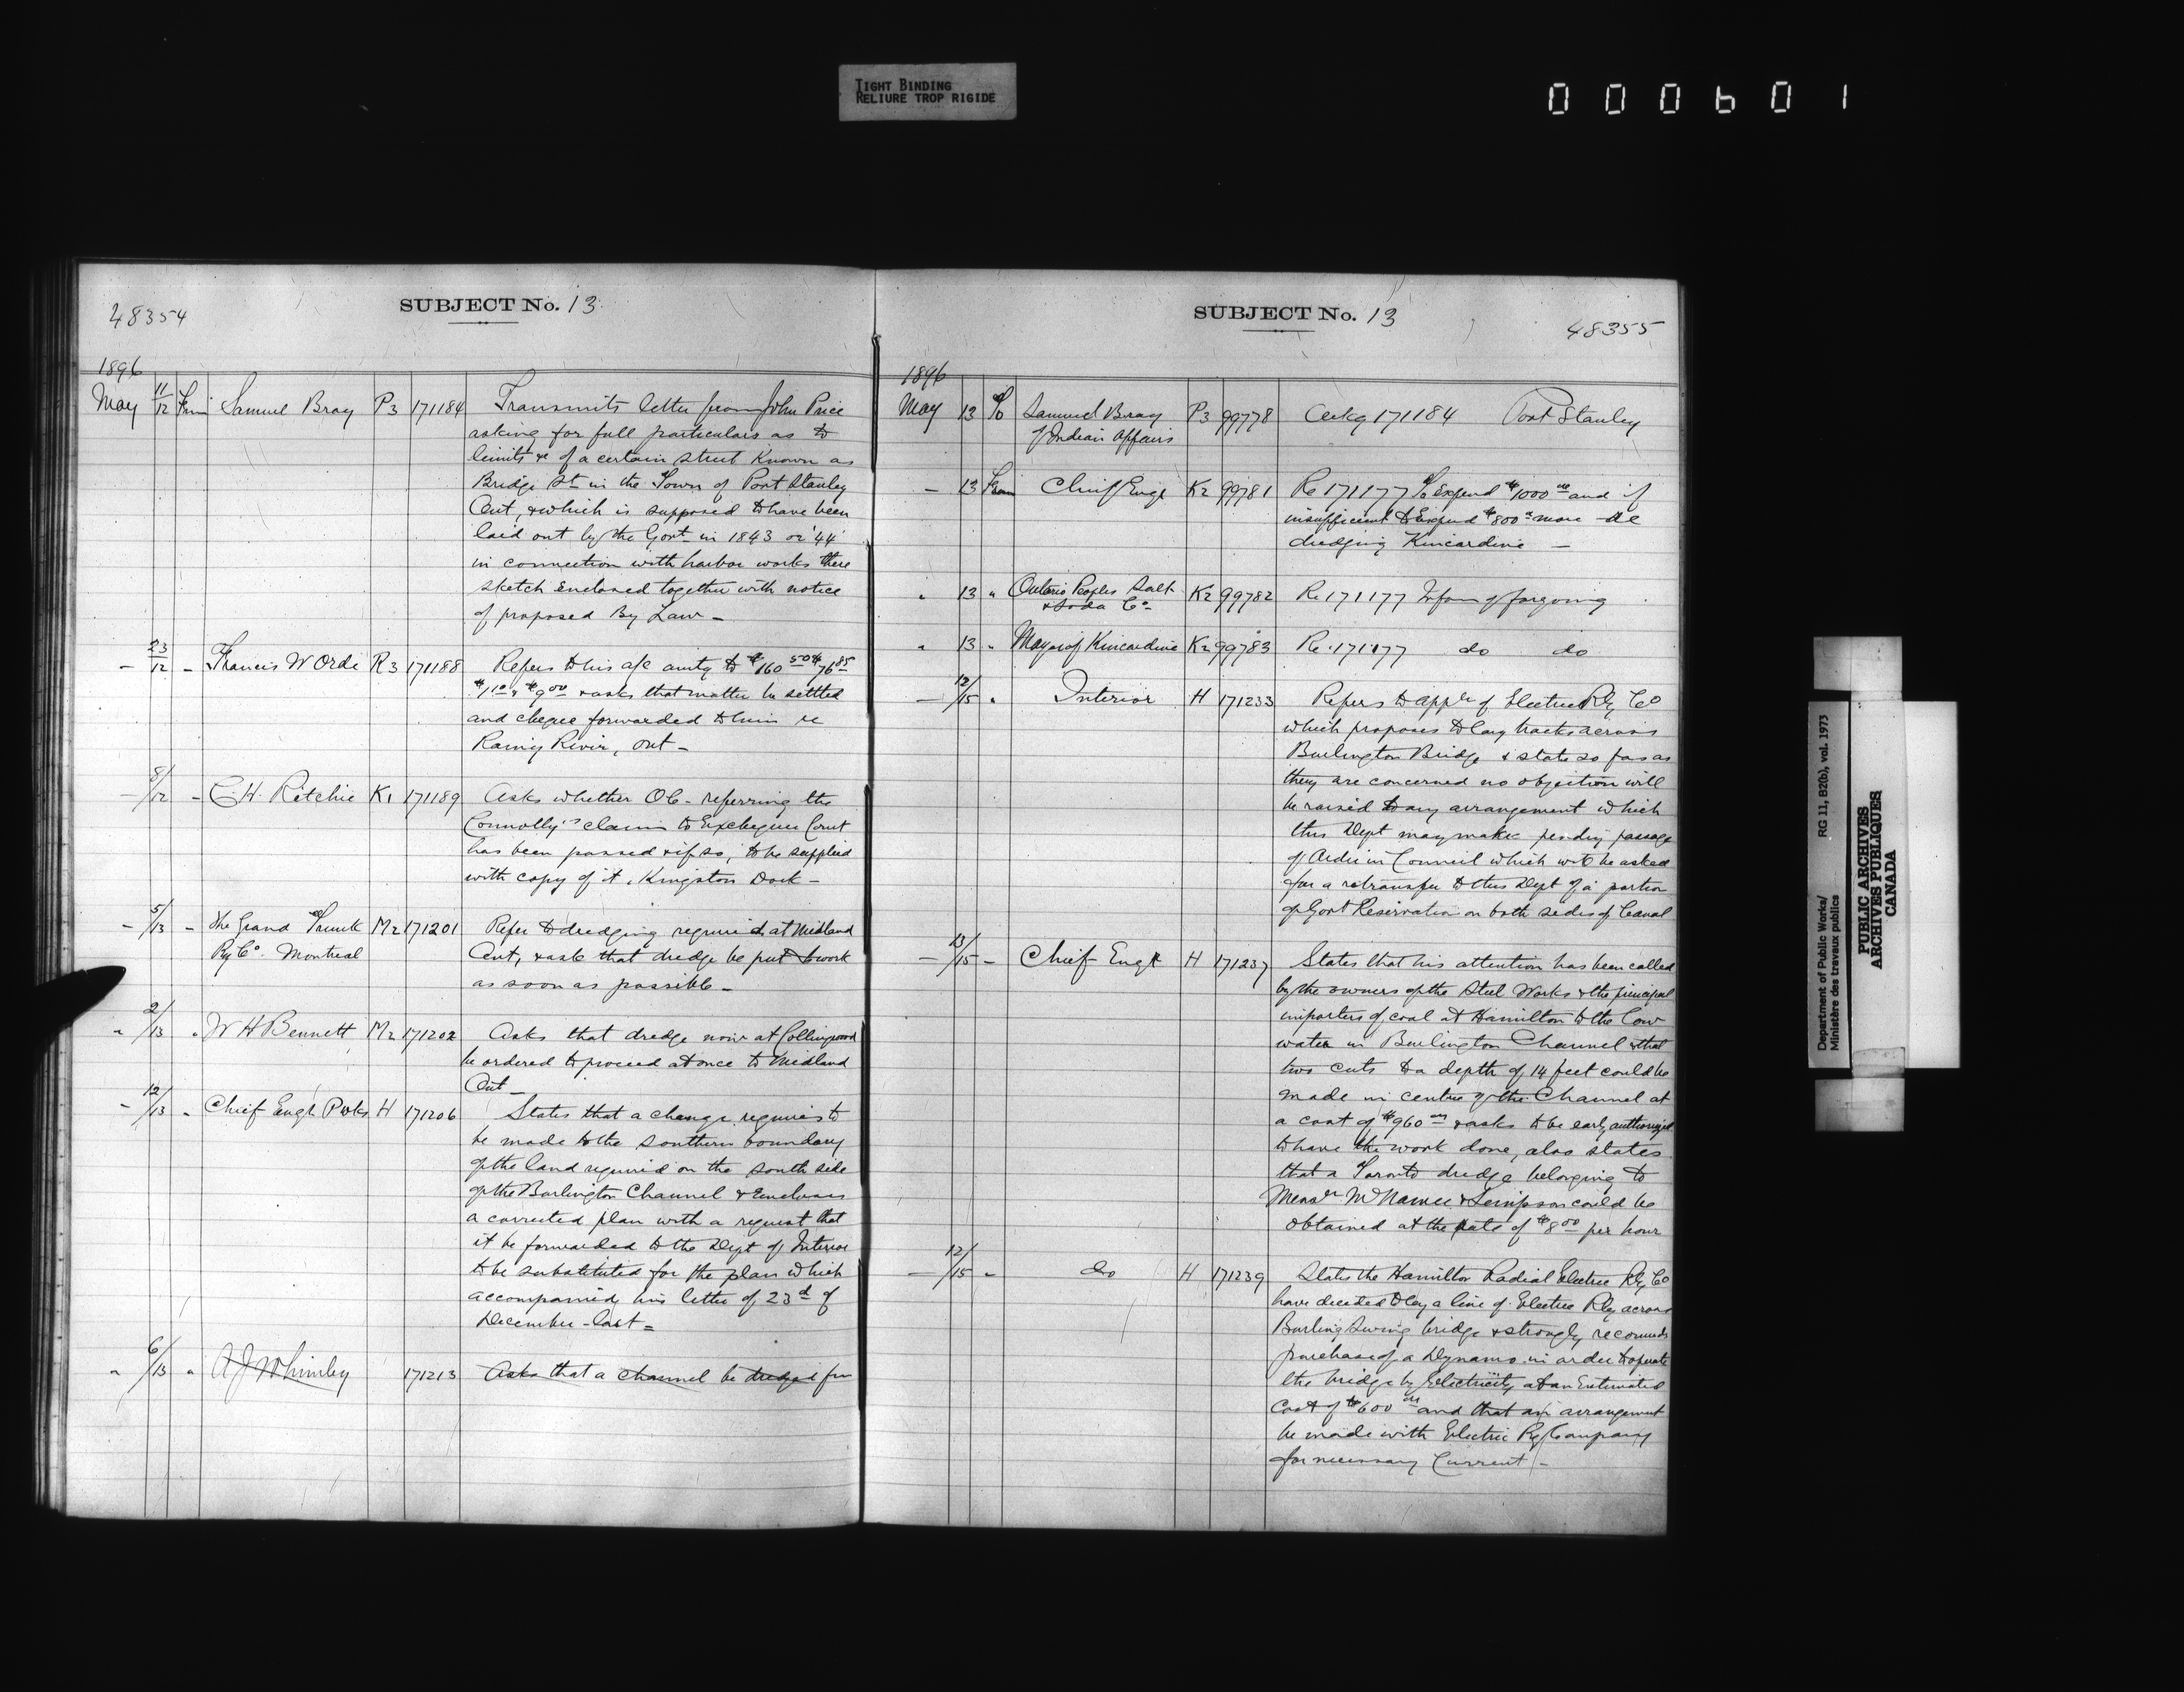 TIGHT BINDING
RELIURE TROP RIGIDE
000601
48354
SUBJECT No. 13
1896
May 11/12 From Samuel Bray P3 171184 Transmits letter from John Price
asking for full particulars as to
limits &c of a certain street known as
Bridge St in the Town of Port Stanley
Ont, & which is supposed to have been
laid out by the Govt in 1843 or '44
in connection with harbor works there
sketch enclosed together with notice
of proposed By Law –
– 23/12 – Francis W Orde R3 171188 Refers to his a/c amtg to $160 50 $76 85
$1 10 & $9 00 & asks that matter be settled
and cheque forwarded to him re
Rainy River, Ont –
– 8/12 – C. H. Ritchie K1 171189 Asks whether OC – referring the
Connolly's claim to Exchequer Court
has been passed & if so, to be supplied
with copy of it, Kingston Dock –
– 5/13 – The Grand Trunk M2 171201 Refer to dredging required at Midland
Ry Co. Montreal Ont, & ask that dredge be put to work
as soon as possible –
" 2/13 " W H Bennett M2 171202 Asks that dredge now at Collingwood
be ordered to proceed at once to Midland
Ont –
– 12/13 " Chief Engr Pwks H 171206 States that a change requires to
be made to the southern boundary
of the land required on the south side
of the Burlington Channel & encloses
a corrected plan with a request that
it be forwarded to the Dept of Interior
to be substituted for the plan which
accompanied his letter of 23d of
December last =
" 6/13 " A J Whimbey 171213 Asks that a channel be dredged fm
SUBJECT No. 13
48355
1896
May 13 To Samuel Bray P3 99778 Ackg 171184 Port Stanley
of Indian Affairs
– 13 From Chief Engr K2 99781 Re 171177 To Expend $1000 00 and if
insufficient to Expend $800 more – re
dredging Kincardine –
" 13 " Ontario Peoples Salt K2 99782 Re 171177 Infom of forgoing
& Soda Co –
" 13 " Mayor of Kincardine K2 99783 Re 171177 do do
– 12/15 " Interior H 171233 Refers to appln of Electric Rly Co
which proposes to lay tracks across
Burlington Bridge & state so far as
they are concerned no objection will
be raised to any arrangement which
this Dept may make pending passage
of Order in Council which will be asked
for a retransfer to this Dept of a portion
of Govt Reservation on both sides of Canal
– 13/15 – Chief Engr H 171237 States that his attention has been called
by the owners of the Steel Works & the principal
importers of coal at Hamilton to the low
water in Burlington Channel & that
two cuts to a depth of 14 feet could be
made in centre of the Channel at
a cost of $960 00 & asks to be early authorized
to have the work done, also states
that a Toronto dredge belonging to
Messrs McNamee & Simpson could be
obtained at the rate of $8 00 per hour
– 12/15 – do H 171239 States the Hamilton Radial Electric Rly Co
have decided to lay a line of Electric Rly across
Burling Swing bridge & strongly recomnds
purchase of a Dynamo in order to operate
the bridge by Electricity at an Estimated
Cost of $600 00 and that an arrangement
be made with Electric Ry Company
for necessary Current –
Department of Public Works/
Ministère des travaux publics
RG 11, B2(b), vol. 1973
PUBLIC ARCHIVES
ARCHIVES PUBLIQUES
CANADA